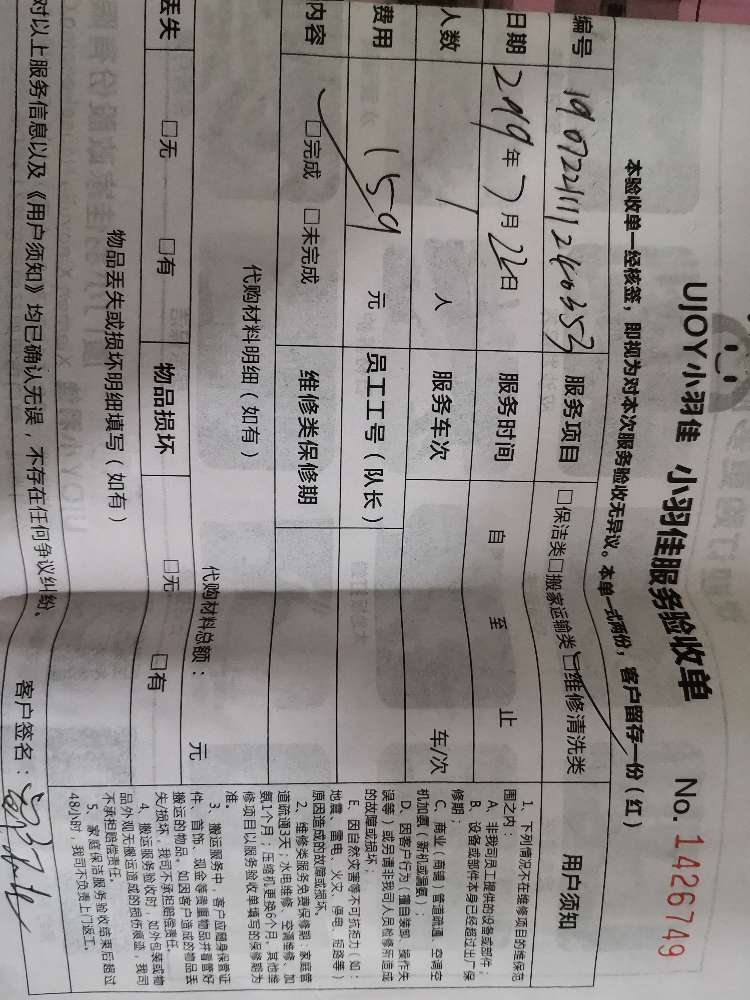 UJOY小羽佳 小羽佳服务验收单 No. 1426749
本验收单一经核签，即视为对本次服务验收无异议。本单一式两份，客户留存一份（红）
编号 服务项目 □保洁类□搬家运输类☑维修清洗类
日期 2019年7月22日 服务时间 自 至 止
人数 1 人 服务车次 车/次
费用 159 元 员工工号（队长）
内容 ☑完成 □未完成 维修类保修期
代购材料明细（如有）
代购材料总额： 元
丢失 □无 □有 物品损坏 □无 □有
物品丢失或损坏明细填写（如有）
对以上服务信息以及《用户须知》均已确认无误，不存在任何争议纠纷。
客户签名：
用户须知
1、下列情况不在维修项目的维保范
围之内：
A、非我司员工提供的设备或部件；
B、设备或部件本身已经超过出厂保
修期；
C、商业（商铺）管道疏通、空调空
机加氨（新机或漏氨）；
D、因客户行为（擅自装卸、操作失
误等）或另请非我司人员检修所造成
的故障或损坏；
E、因自然灾害等不可抗拒力（如：
地震、雷电、火灾、停电、短路等）
原因造成的故障或损坏。
2、维修类服务免费保修期：家庭管
道疏通3天；水电维修、空调维修、加
氨1个月；压缩机更换6个月，其他维
修项目以服务验收单填写的保修期为
准。
3、搬运服务中，客户应随身保管证
件、首饰、现金等贵重物品并看管好
搬运的物品。如因客户造成的物品丢
失/损坏，我司不承担赔偿责任。
4、搬运服务验收时，如外包装或物
品外观无搬运造成的损伤痕迹，我司
不承担赔偿责任。
5、家庭保洁服务验收结束后超过
48小时，我司不负责上门返工。